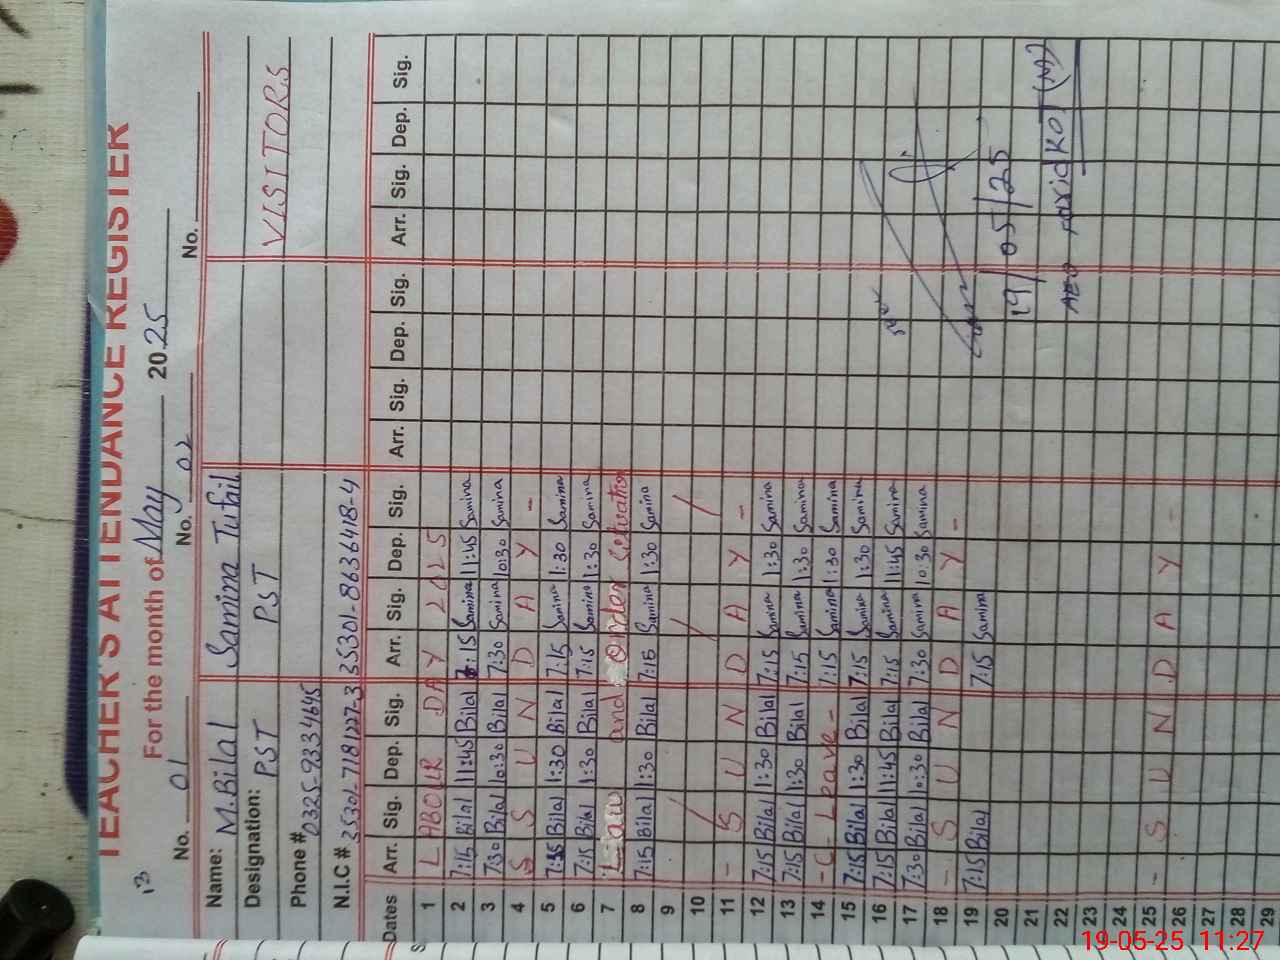 TEACHER'S ATTENDANCE REGISTER
13 For the month of May 2025
No. 01 No. 02 No.
Name: M.Bilal Samina Tufail
Designation: PST PST VISITORS
Phone # 0325-9334645
N.I.C # 35301-7181227-3 35301-8636418-4
Dates Arr. Sig. Dep. Sig. Arr. Sig. Dep. Sig. Arr. Sig. Dep. Sig. Arr. Sig. Dep. Sig.
1 LABOUR DAY 2025
2 7:15 Bilal 11:45 Bilal 7:15 Samina 11:45 Samina
3 7:30 Bilal 10:30 Bilal 7:30 Samina 10:30 Samina
4 S S U N D A Y -
5 7:15 Bilal 1:30 Bilal 7:15 Samina 1:30 Samina
6 7:15 Bilal 1:30 Bilal 7:15 Samina 1:30 Samina
7 and order
8 7:15 Bilal 1:30 Bilal 7:15 Samina 1:30 Samina
9
10 / / /
11 - S U N D A Y -
12 7:15 Bilal 1:30 Bilal 7:15 Samina 1:30 Samina
13 7:15 Bilal 1:30 Bilal 7:15 Samina 1:30 Samina
14 - C - Leave - 7:15 Samina 1:30 Samina
15 7:15 Bilal 1:30 Bilal 7:15 Samina 1:30 Samina
16 7:15 Bilal 11:45 Bilal 7:15 Samina 11:45 Samina
17 7:30 Bilal 10:30 Bilal 7:30 Samina 10:30 Samina
18 - S U N D A Y -
19 7:15 Bilal 7:15 Samina
20
21 19/05/25
22
23 AEO Farid KOT (M)
24
25 - S U N D A Y -
26
27
28
29
19-05-25 11:27